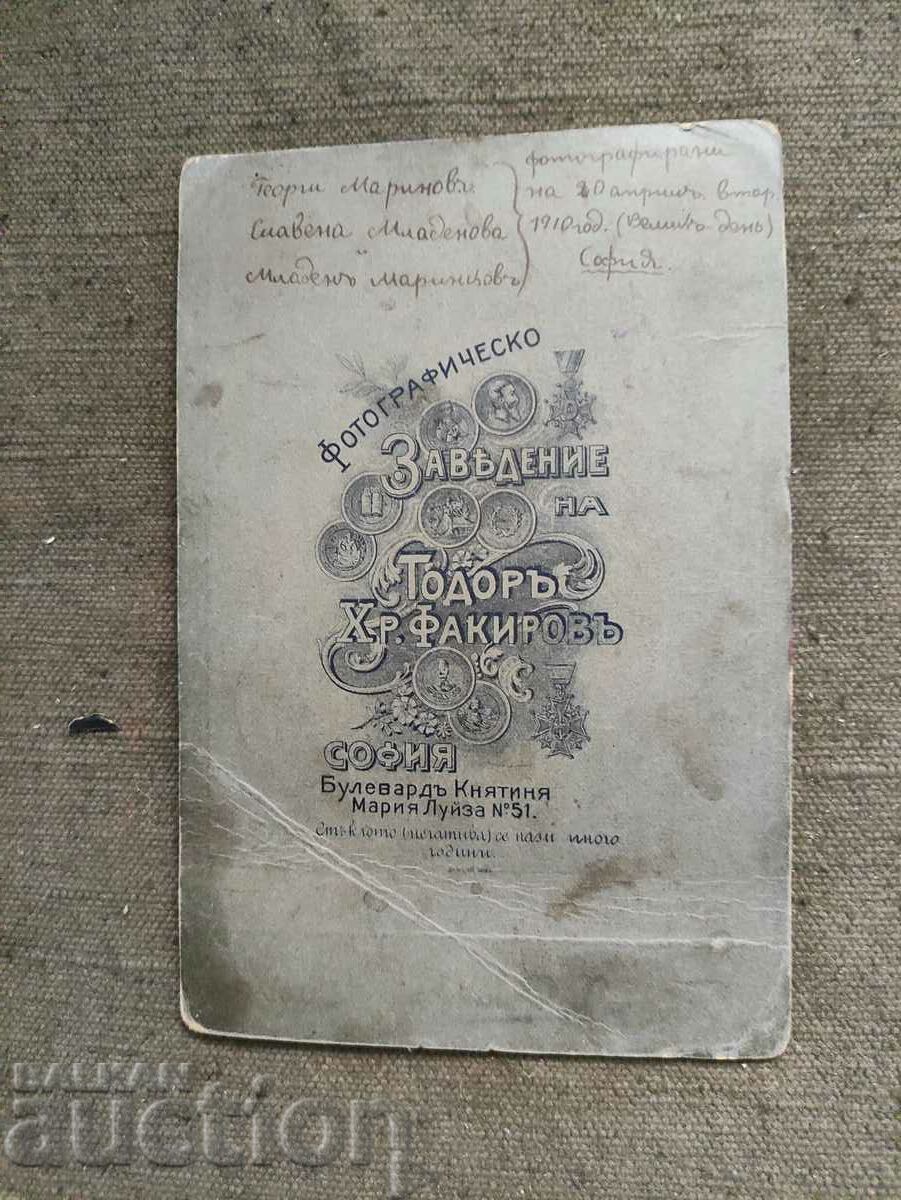 Георги Мариновъ
Славена Младенова
Младенъ Маринцовъ
фотографирани
на 20 априлъ втор.
1910 год. (Великъ-день)
София.
ФОТОГРАФИЧЕСКО
ЗАВѢДЕНИЕ
НА
ТОДОРЪ
ХР. ФАКИРОВЪ
СОФИЯ
Булевардъ Княгиня
Мария Луйза №51.
Стъклото (негатива) се пази много
години.
BALKAN
auction